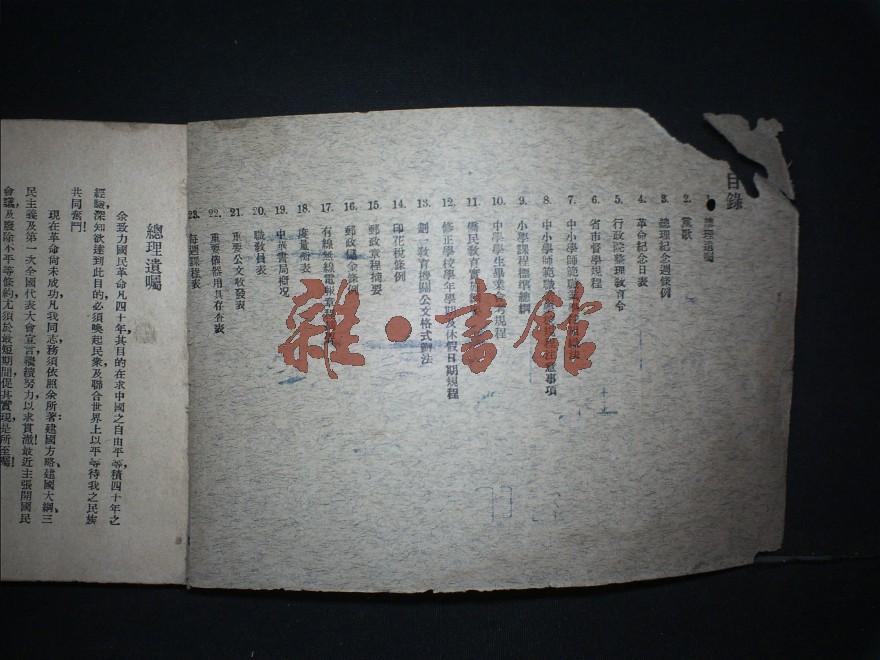 目錄
1. 總理遺囑
2. 黨歌
3. 總理紀念週條例
4. 革命紀念日表
5. 行政院整理教育令
6. 省市督學規程
7. 中小學師範職業
8. 中小學師範職業注意事項
9. 小學課程標準總綱
10. 中學學生畢業會考規程
11. 僑民教育實施
12. 修正學校學年學期及休假日期規程
13. 劃一教育機關公文格式辦法
14. 印花稅條例
15. 郵政章程摘要
16. 郵政儲金條例
17. 有線無線電報章程
18. 度量衡表
19. 中華書局概況
20. 職教員表
21. 重要公文收發表
22. 重要儀器用具存查表
23. 每週課程表
雜·書館
總理遺囑
余致力國民革命凡四十年,其目的在求中國之自由平等積四十年之
經驗深知欲達到此目的必須喚起民衆及聯合世界上以平等待我之民族
共同奮鬥!
現在革命尚未成功凡我同志務須依照余所著:建國方略、建國大綱、三
民主義及第一次全國代表大會宣言,繼續努力以求貫澈!最近主張開國民
會議及廢除不平等條約尤須於最短期間促其實現,是所至囑!